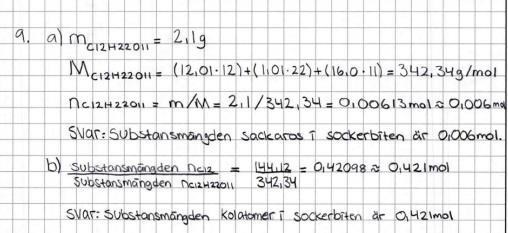 9. a) mC12H22O11 = 2,1g
MC12H22O11 = (12,01·12)+(1,01·22)+(16,0·11) = 342,34g/mol
nC12H22O11 = m/M = 2,1/342,34 = 0,00613mol ≈ 0,006mol
Svar: Substansmängden sackaros i sockerbiten är 0,006mol.
b) Substansmängden nC12 / Substansmängden nC12H22O11 = 144,12 / 342,34 = 0,42098 ≈ 0,421mol
Svar: Substansmängden kolatomer i sockerbiten är 0,421mol